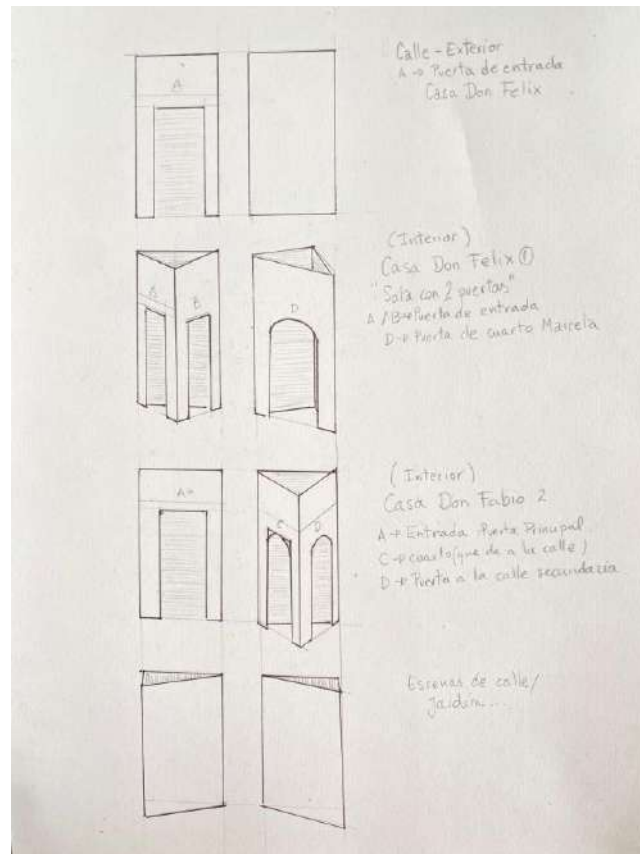 Calle - Exterior
A → Puerta de entrada
Casa Don Felix
A
(Interior)
Casa Don Felix ①
"Sala con 2 puertas"
A/B→Puerta de entrada
D→Puerta de cuarto Marcela
A
B
D
(Interior)
Casa Don Fabio 2
A→Entrada Puerta Principal
C→cuarto (que da a la calle)
D→Puerta a la calle secundaria
A
C
D
Escenas de calle/
Jardín...